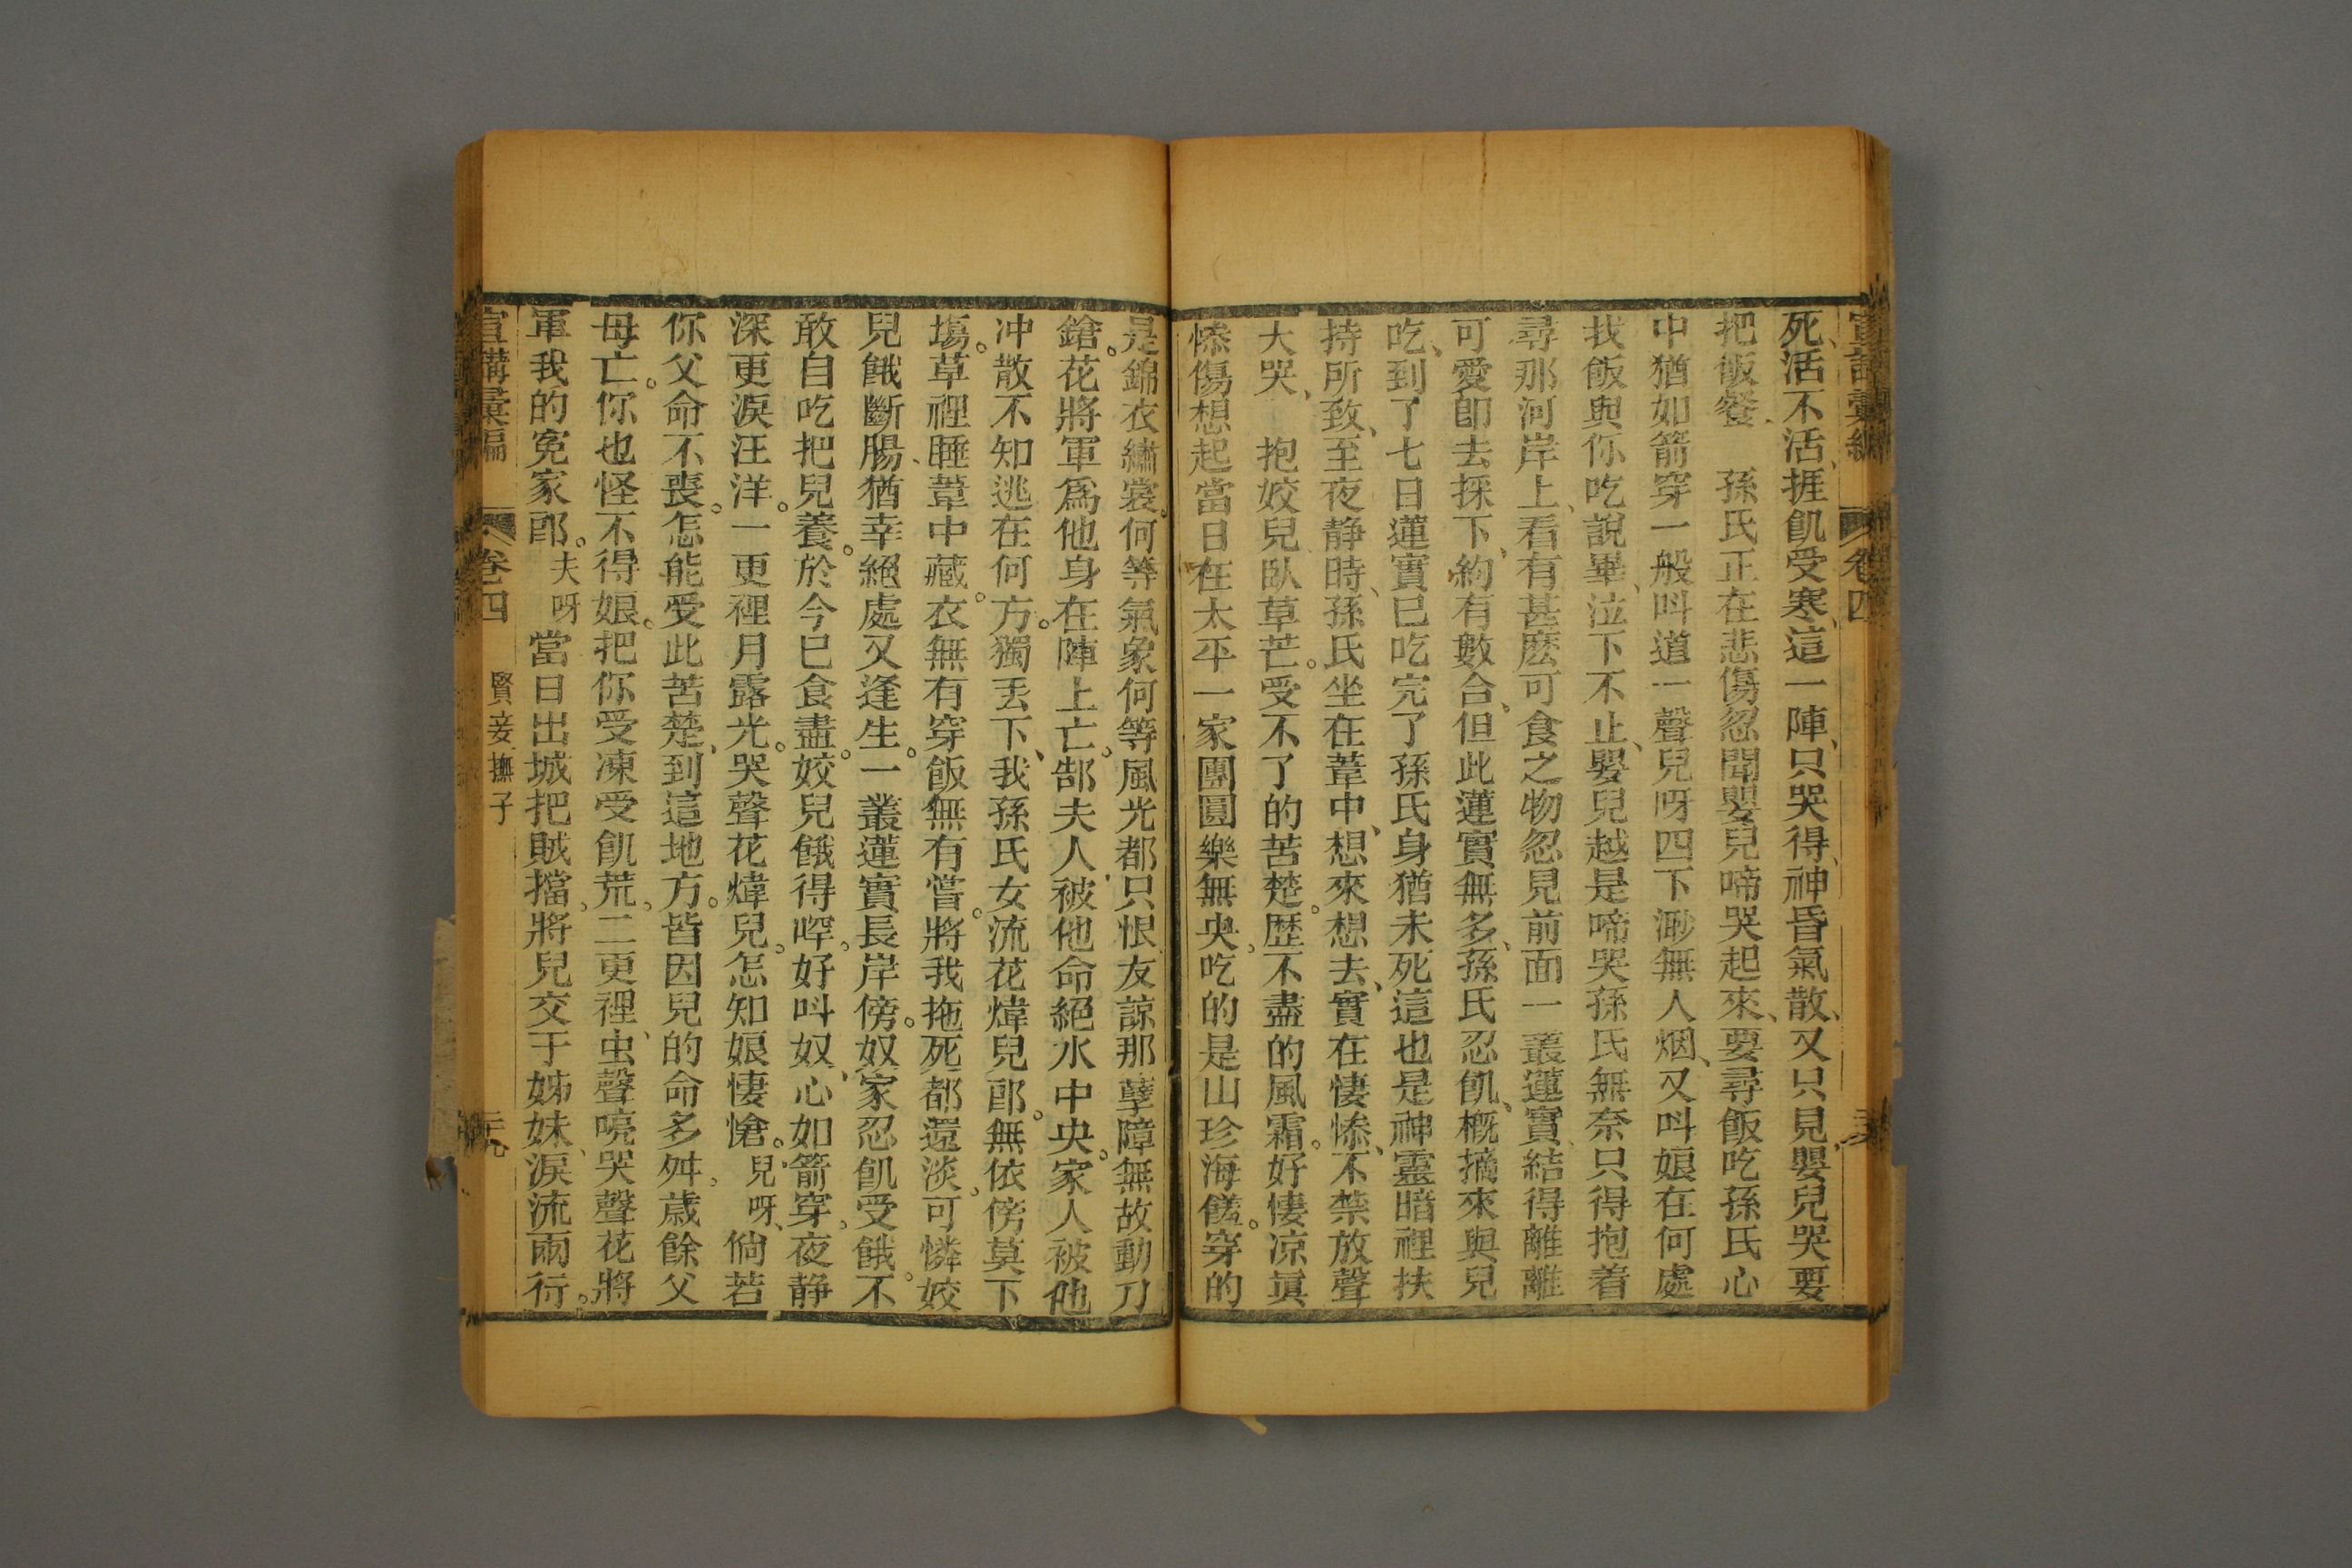 宣講彙編 卷四
死、活不活、捱飢受寒、這一陣、只哭得、神昏氣散、又只見、嬰兒哭要
把飯餐、孫氏正在悲傷忽聞嬰兒啼哭起來、要尋飯吃孫氏心
中猶如箭穿一般呌道一聲兒呀四下渺無人烟、又呌娘在何處
找飯與你吃說畢、泣下不止、嬰兒越是啼哭孫氏無奈只得抱着
尋那河岸上、看有甚麽可食之物忽見前面一叢蓮實、結得離離
可愛卽去採下、約有數合、但此蓮實無多、孫氏忍飢、概摘來與兒
吃、到了七日蓮實已吃完了孫氏身猶未死這也是神靈暗裡扶
持所致、至夜静時、孫氏坐在葦中、想來想去、實在悽慘、不禁放聲
大哭、抱姣兒臥草芒。受不了的苦楚。歷不盡的風霜。好悽凉眞
慘傷想起當日在太平一家團圓樂無央。吃的是山珍海饈。穿的
是錦衣繡裳。何等氣象何等風光都只恨友諒那孽障無故動刀
鎗。花將軍爲他身在陣上亡。郜夫人、被他命絕水中央。家人被他
冲散不知逃在何方。獨丟下、我孫氏女流花煒兒郎。無依傍莫下
塲。草裡睡葦中藏。衣無有穿飯無有嘗。將我拖死都還淡。可憐姣
兒餓斷腸、猶幸絕處又逢生。一叢蓮實長岸傍。奴家忍飢受餓。不
敢自吃把兒養。於今已食盡。姣兒餓得㖕。好呌奴、心如箭穿。夜静
深更淚汪洋。一更裡月露光。哭聲花煒兒。怎知娘悽愴。兒呀、倘若
你父命不喪。怎能受此苦楚、到這地方。皆因兒的命多舛。歲餘父
母亡。你也怪不得娘。把你受凍受飢荒。二更裡、虫聲喨哭聲花將
軍我的寃家郎。夫呀當日出城把賊擋。將兒交于姊妹、淚流兩行。
宣講彙編 卷四 賢妾撫子 二十九